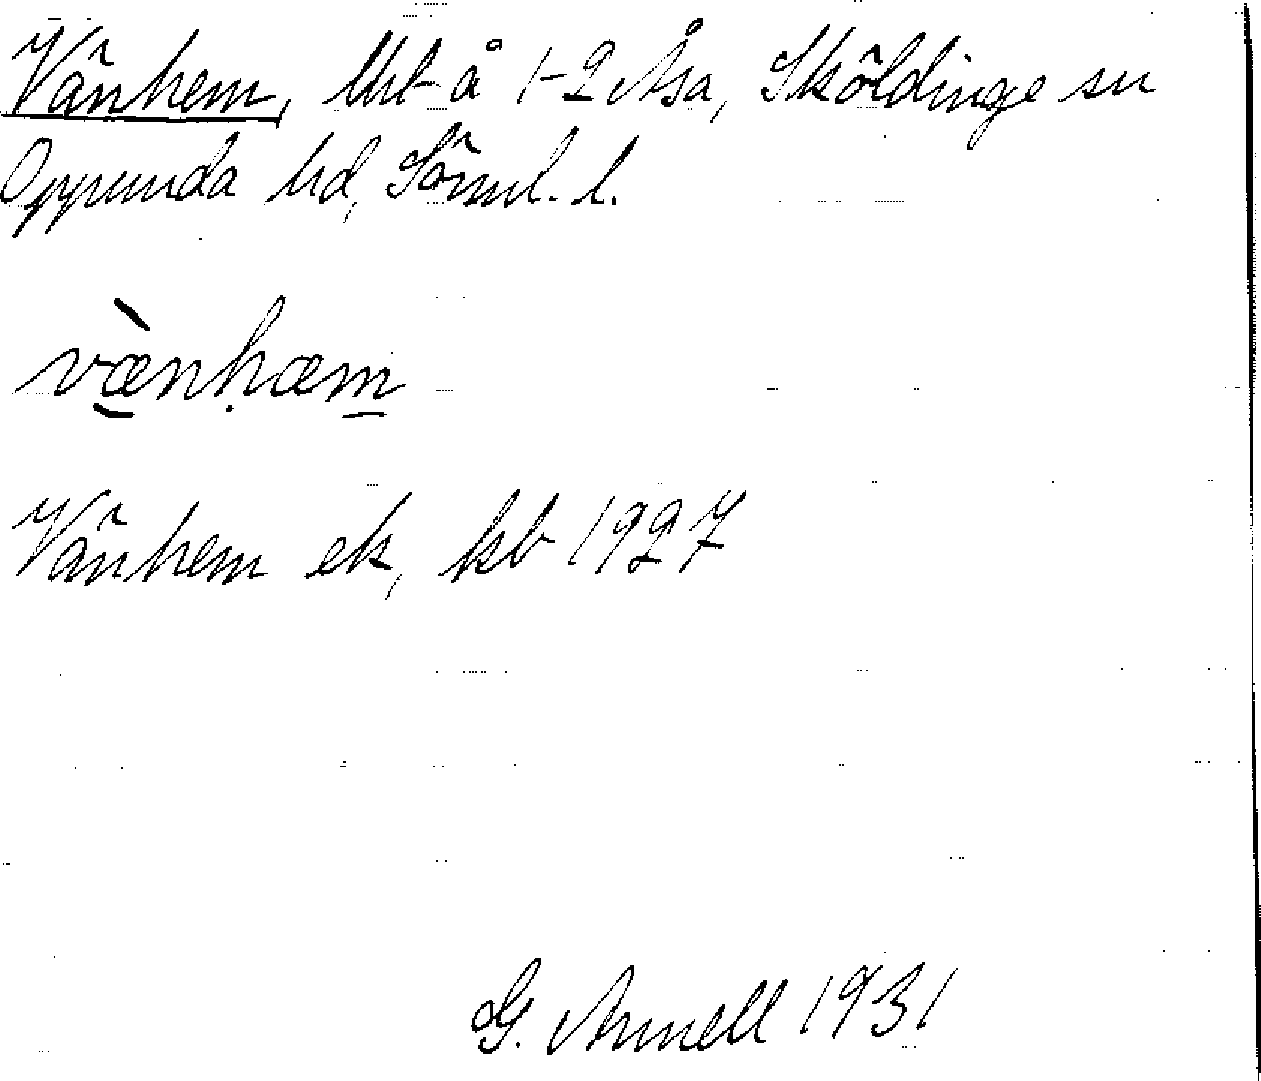 Vänhem, lht å 1-2 Åsa, Sköldinge sn
Oppunda hd, Söml. l.
vænhæm
Vänhem ek, kb 1927
G. Arnell 1931